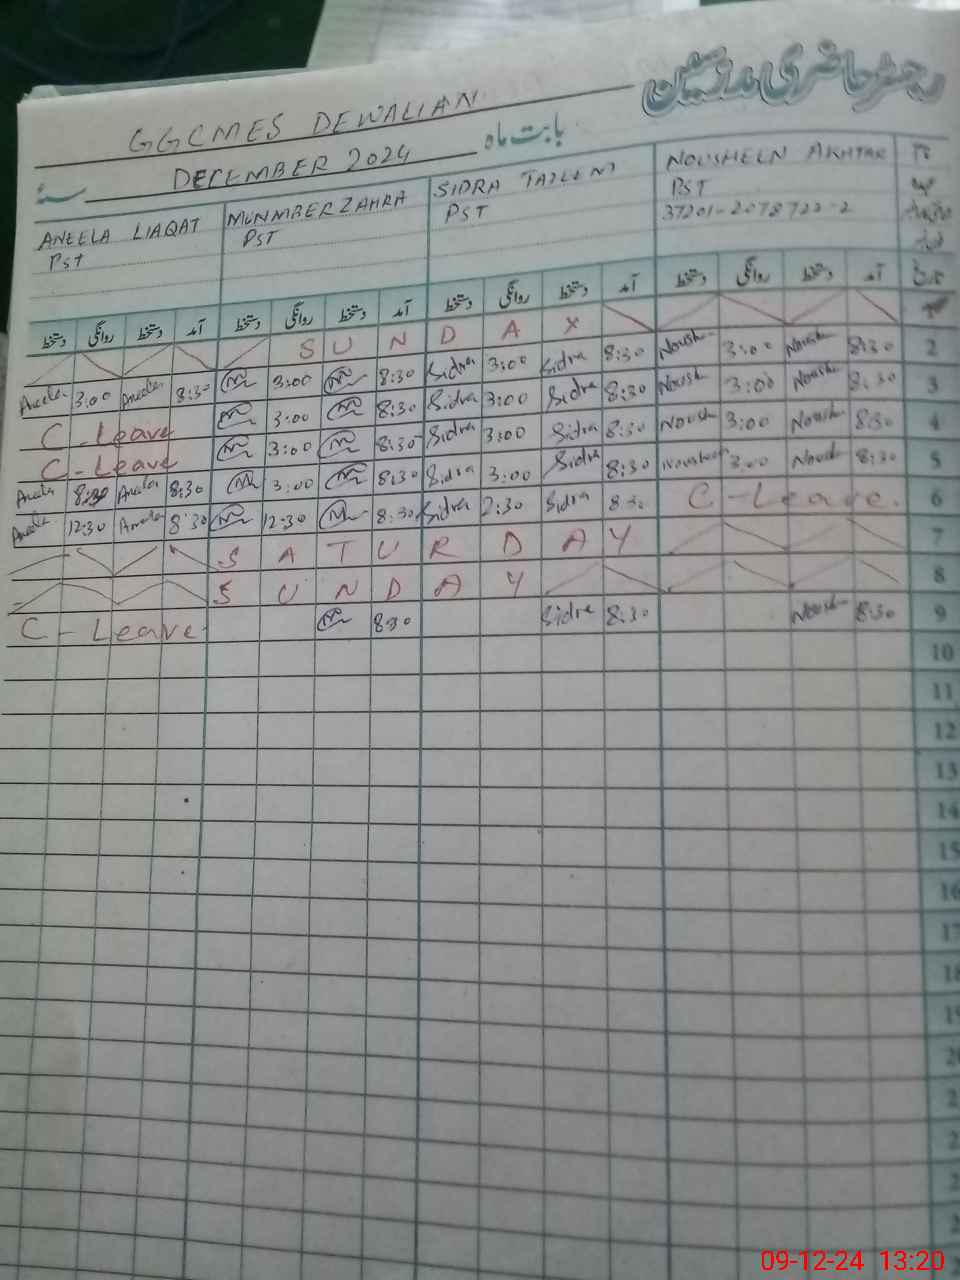 رجسٹر حاضری مدرسین
GGCMES DEWALIAN بابت ماہ
DECEMBER 2024
ANEELA LIAQAT MUNMBER ZAHRA SIDRA NOUSHEEN AKHTAR
PST PST PST PST
37201-2078722-2
دستخط روانگی دستخط آمد دستخط روانگی دستخط آمد دستخط روانگی دستخط آمد دستخط روانگی دستخط آمد تاریخ
S U N D A Y
Aneela 3:00 Aneela 8:30 3:00 8:30 Sidra 3:00 Sidra 8:30 Noush 3:00 Noush 8:30 2
C-Leave 3:00 8:30 Sidra 3:00 Sidra 8:30 Noush 3:00 Noush 8:30 3
C-Leave 3:00 8:30 Sidra 3:00 Sidra 8:30 Noush 3:00 Noush 8:30 4
Aneela Aneela 8:30 3:00 8:30 Sidra 3:00 Sidra 8:30 Nousheen 3:00 Noush 8:30 5
Aneela 12:30 Aneela 8:30 12:30 8:30 Sidra 2:30 Sidra 8:30 C-Leave. 6
S A T U R D A Y 7
S U N D A Y 8
C-Leave 8:30 Sidra 8:30 Noush 8:30 9
10
11
12
13
14
15
16
17
18
09-12-24 13:20